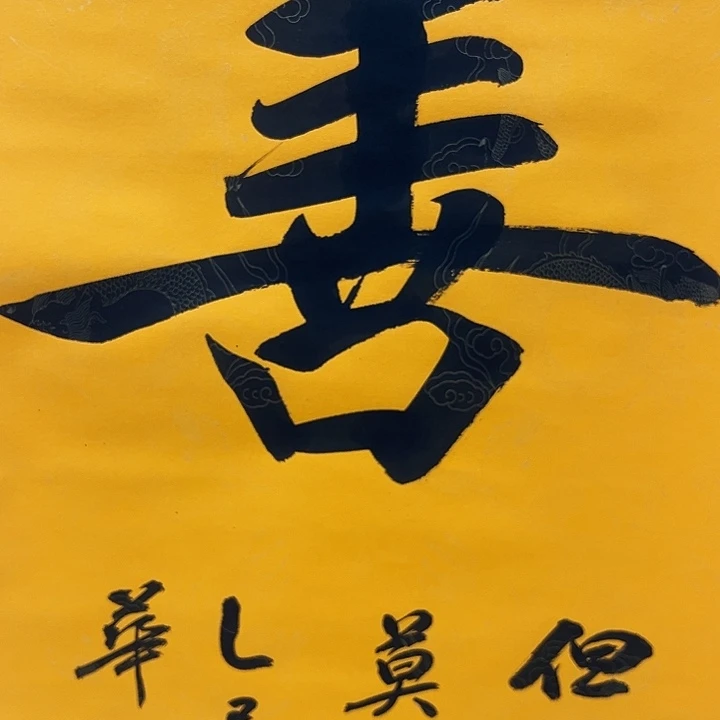 善
但
莫
乙
華